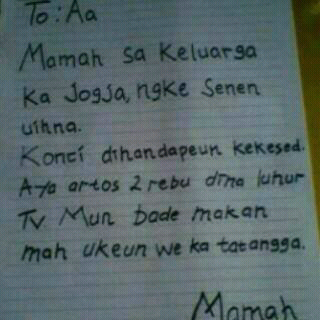 To: Aa
Mamah sa Keluarga
Ka Jogja, ngke Senen
uihna.
Konci dihandapeun kekesed.
Aya artos 2 rebu dina luhur
TV. Mun bade makan
mah ukeun we ka tatangga.
Mamah